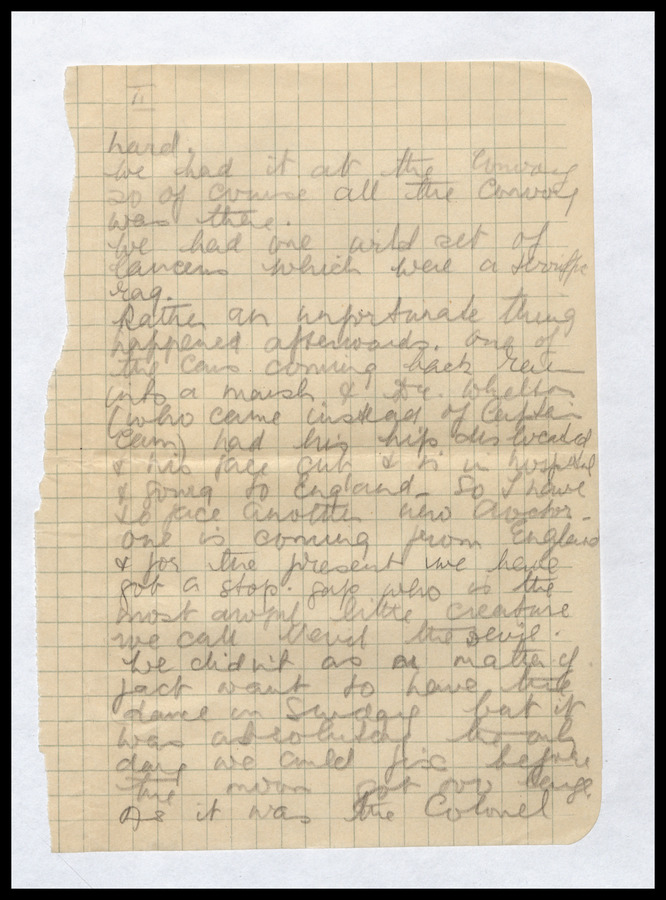 II
hard.
We had it at the Convoy
so of course all the Convoy
was there.
We had one wild set of
lancers which were a terrific
rag.
Rather an unfortunate thing
happened afterwards. One of
the cars coming back ran
into a marsh & Dr. Whelton
(who came instead of Captain
Cam) had his hip dislocated
& his face cut & is in hospital
& going to England. So I have
to face another new doctor.
One is coming from England
& for the present we have
got a stop-gap who is the
most awful little creature
we call the Devil.
We didn't as a matter of
fact want to have the
dance on Sunday but it
was absolutely the only
day we could fix before
the moon got too large.
As it was the Colonel